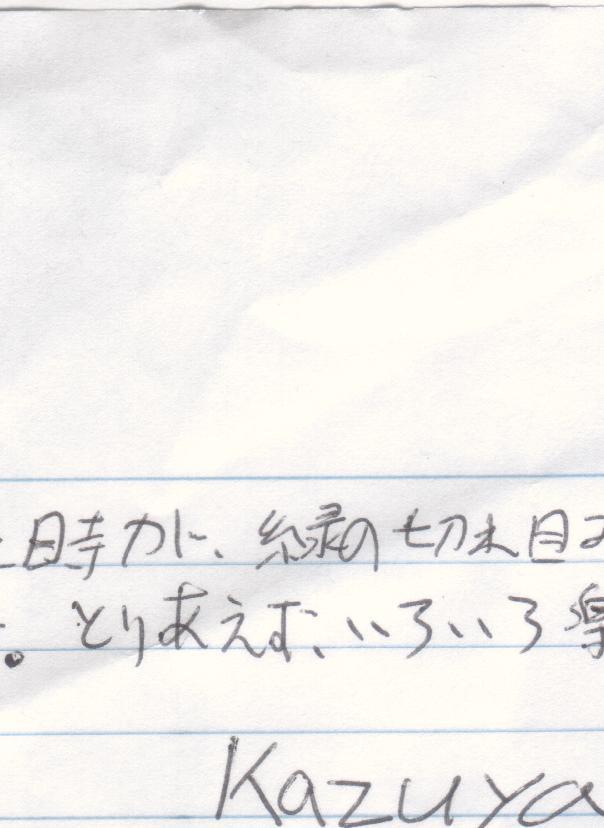 時が、縁の切れ目
。とりあえず、いろいろ楽
Kazuya